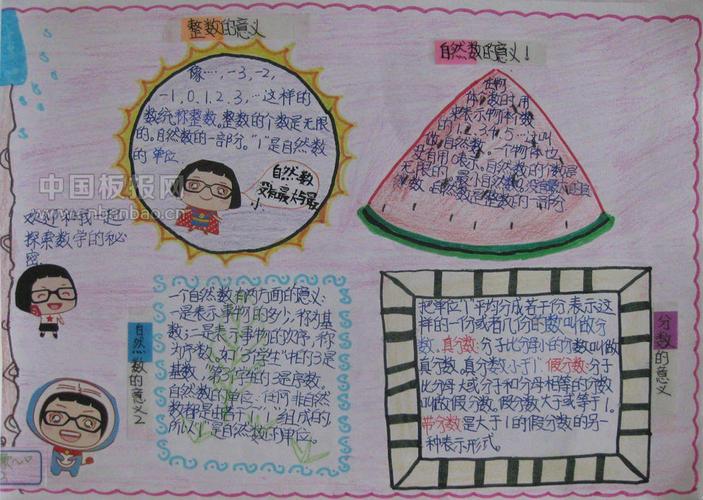 整数的意义
像…,-3,-2,
-1,0,1,2,3,…这样的
数统称整数。整数的个数是无限
的。自然数的一部分。"1"是自然数
的单位
自然数
没有最大
中国板报网
欢迎和我一起
探索数学的秘
密
自然数的意义!
在物
体个数时,用
来表示物体个数
的1、2、3、4、5…叫
做自然数。一个物体也
没有用0表示。自然数的个数是
无限的。最小自然数
数。自然数是整数的一部分
自然数的意义2
一个自然数有两方面的意义:
一是表示事物的多少,称为基
数;二是表示事物的次序,称
为序数。如"3个学生"中的3是
基数。"第3个学生"的3是序数。
自然数的单位:任何非自然
数都是由若干个"1"组成的,
所以"1"是自然数的单位。
分数的意义
把单位"1"平均分成若干份,表示这
样的一份或者几份的数叫做分
数。真分数:分子比分母小的分数叫做
真分数。真分数小于1。假分数:分子
比分母大或分子和分母相等的分数
叫做假分数。假分数大于或等于1。
带分数是大于1的假分数的另一
种表示形式。